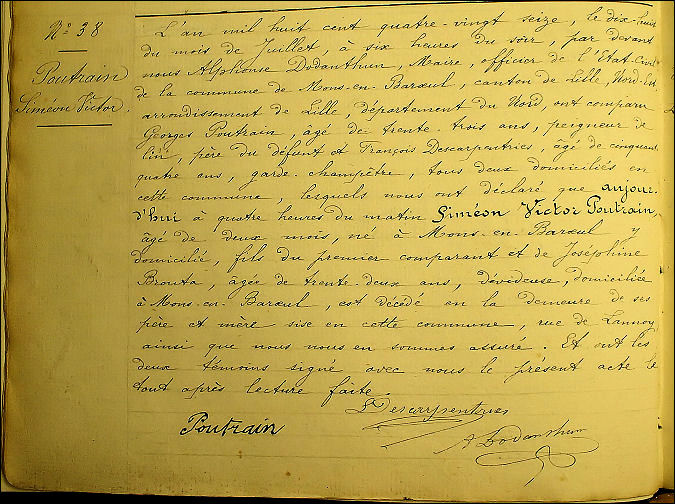 N° 38
Poutrain
Siméon Victor.
L'an mil huit cent quatre-vingt seize, le dix-huit
du mois de Juillet, à six heures du soir, par devant
nous Alphonse Dodanthun, Maire, officier de l'Etat-Civil
de la commune de Mons-en-Barœul, canton de Lille, Nord-Est
arrondissement de Lille, département du Nord, ont comparu
Georges Poutrain, âgé de trente-trois ans, peigneur de
lin, père du défunt et François Descarpentries, âgé de cinquante
quatre ans, garde-champêtre, tous deux domiciliés en
cette commune, lesquels nous ont déclaré que aujour-
d'hui à quatre heures du matin Siméon Victor Poutrain,
âgé de deux mois, né à Mons-en-Barœul y
domicilié, fils du premier comparant et de Joséphine
Brouta, âgée de trente-deux ans, dévideuse, domiciliée
à Mons-en-Barœul, est décédé en la demeure de ses
père et mère sise en cette commune, rue de Lannoy
ainsi que nous nous en sommes assuré. Et ont les
deux témoins signé avec nous le présent acte le
tout après lecture faite.
Descarpentries
Poutrain
A Dodanthun